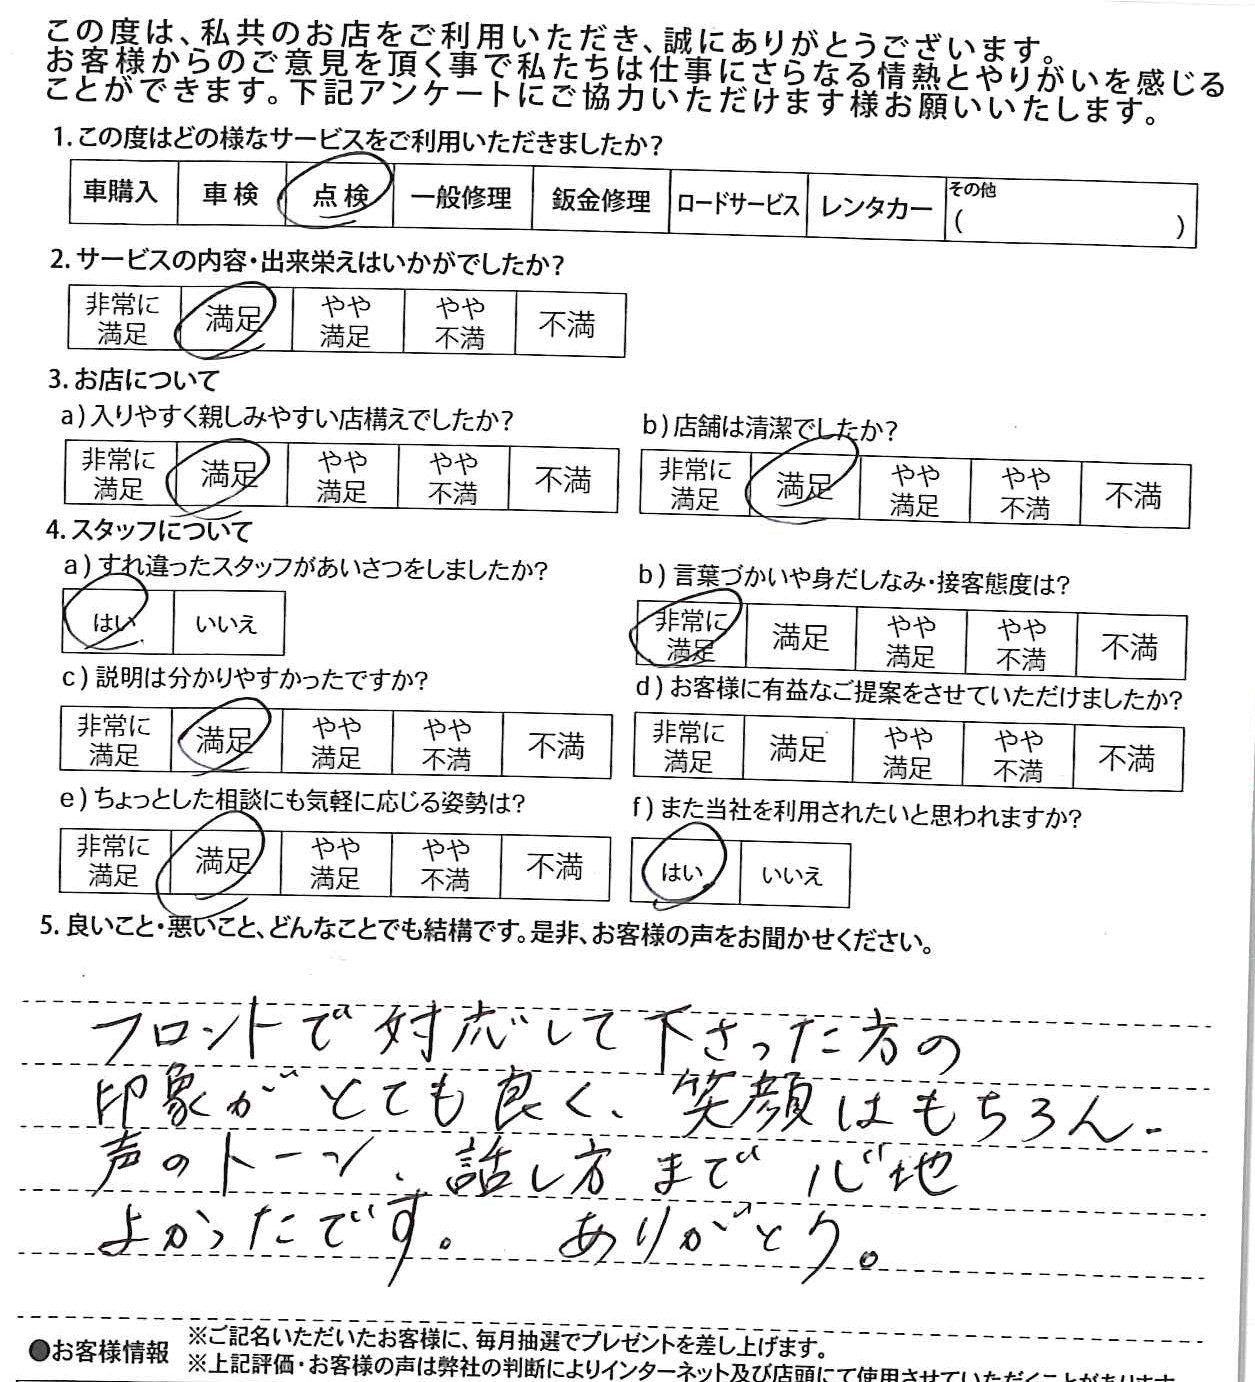 この度は、私共のお店をご利用いただき、誠にありがとうございます。
お客様からのご意見を頂く事で私たちは仕事にさらなる情熱とやりがいを感じる
ことができます。下記アンケートにご協力いただけます様お願いいたします。
1.この度はどの様なサービスをご利用いただきましたか?
車購入 車検 点検 一般修理 鈑金修理 ロードサービス レンタカー その他 ( )
2.サービスの内容・出来栄えはいかがでしたか?
非常に満足 満足 やや満足 やや不満 不満
3.お店について
a)入りやすく親しみやすい店構えでしたか?
非常に満足 満足 やや満足 やや不満 不満
b)店舗は清潔でしたか?
非常に満足 満足 やや満足 やや不満 不満
4.スタッフについて
a)すれ違ったスタッフがあいさつをしましたか?
はい いいえ
b)言葉づかいや身だしなみ・接客態度は?
非常に満足 満足 やや満足 やや不満 不満
c)説明は分かりやすかったですか?
非常に満足 満足 やや満足 やや不満 不満
d)お客様に有益なご提案をさせていただけましたか?
非常に満足 満足 やや満足 やや不満 不満
e)ちょっとした相談にも気軽に応じる姿勢は?
非常に満足 満足 やや満足 やや不満 不満
f)また当社を利用されたいと思われますか?
はい いいえ
5.良いこと・悪いこと、どんなことでも結構です。是非、お客様の声をお聞かせください。
フロントで対応して下さった方の
印象がとても良く、笑顔はもちろん、
声のトーン、話し方まで心地
よかったです。 ありがとう。
●お客様情報 ※ご記名いただいたお客様に、毎月抽選でプレゼントを差し上げます。
※上記評価・お客様の声は弊社の判断によりインターネット及び店頭にて使用させていただくことがあります